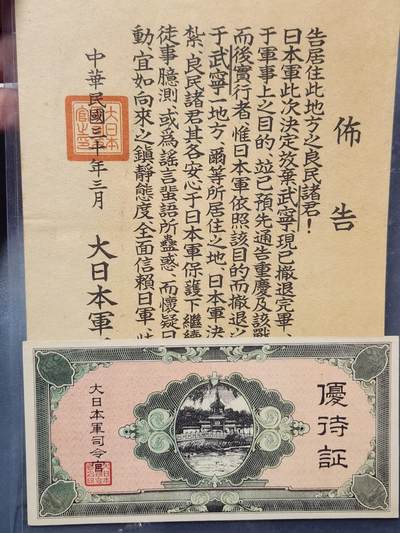 佈告
告居住此地方之良民諸君!
日本軍此次決定放棄武寧現已撤退完軍、
于軍事上之目的、並已預先通告重慶及該戰
而後實行者、惟日本軍依照該目的而撤退
于武寧一地方、爾等所居住之地、日本軍決
紮、良民諸君其各安心于日本軍保護下繼續
徒事臆測、或為謠言蜚語所蠱惑、而懷疑日
動、宜如向來之鎮靜態度、全面信賴日軍、
中華民國三十年三月
大日本軍
大日本
優待証
大日本軍司令官